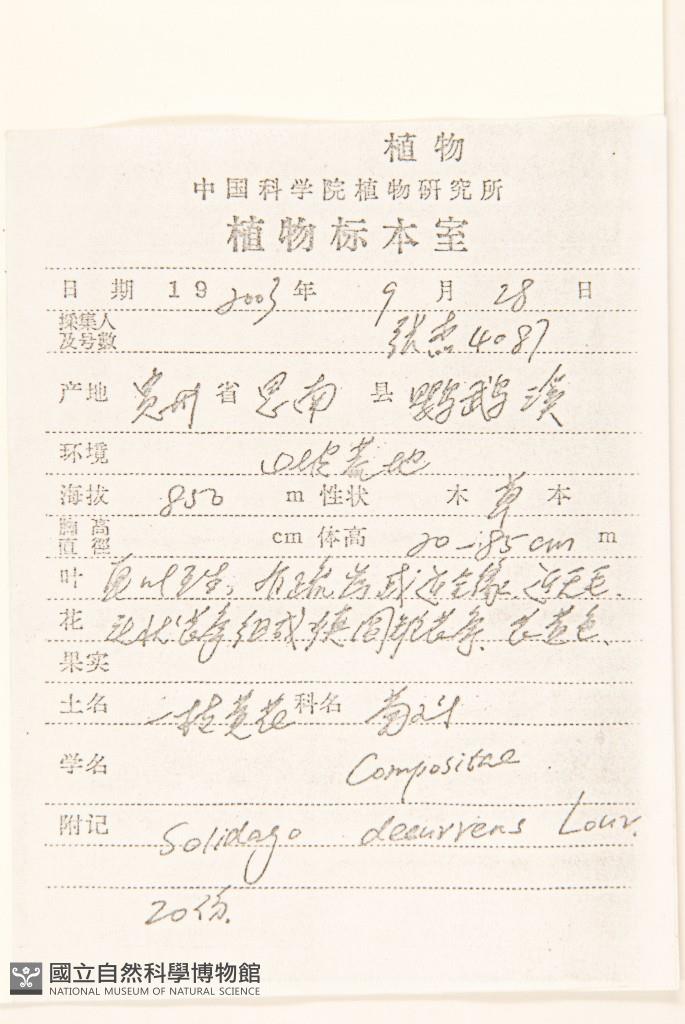 植物
中国科学院植物研究所
植物标本室
日 期 19 2003 年 9 月 28 日
採集人
及号數 张杰 4087
产地 贵州 省 思南 县 鹦鹉溪
环境 山坡荒地
海拔 850 m 性状 木 草 本
胸高
直徑 cm 体高 20-85cm m
叶 单叶互生, 有疏齿或近全缘, 近无毛.
花 头状花序组成 圆锥花序. 花黄色.
果实
土名 一枝黄花 科名 菊科
学名 Compositae
附记 Solidago decurrens Lour.
20份.
國立自然科學博物館
NATIONAL MUSEUM OF NATURAL SCIENCE